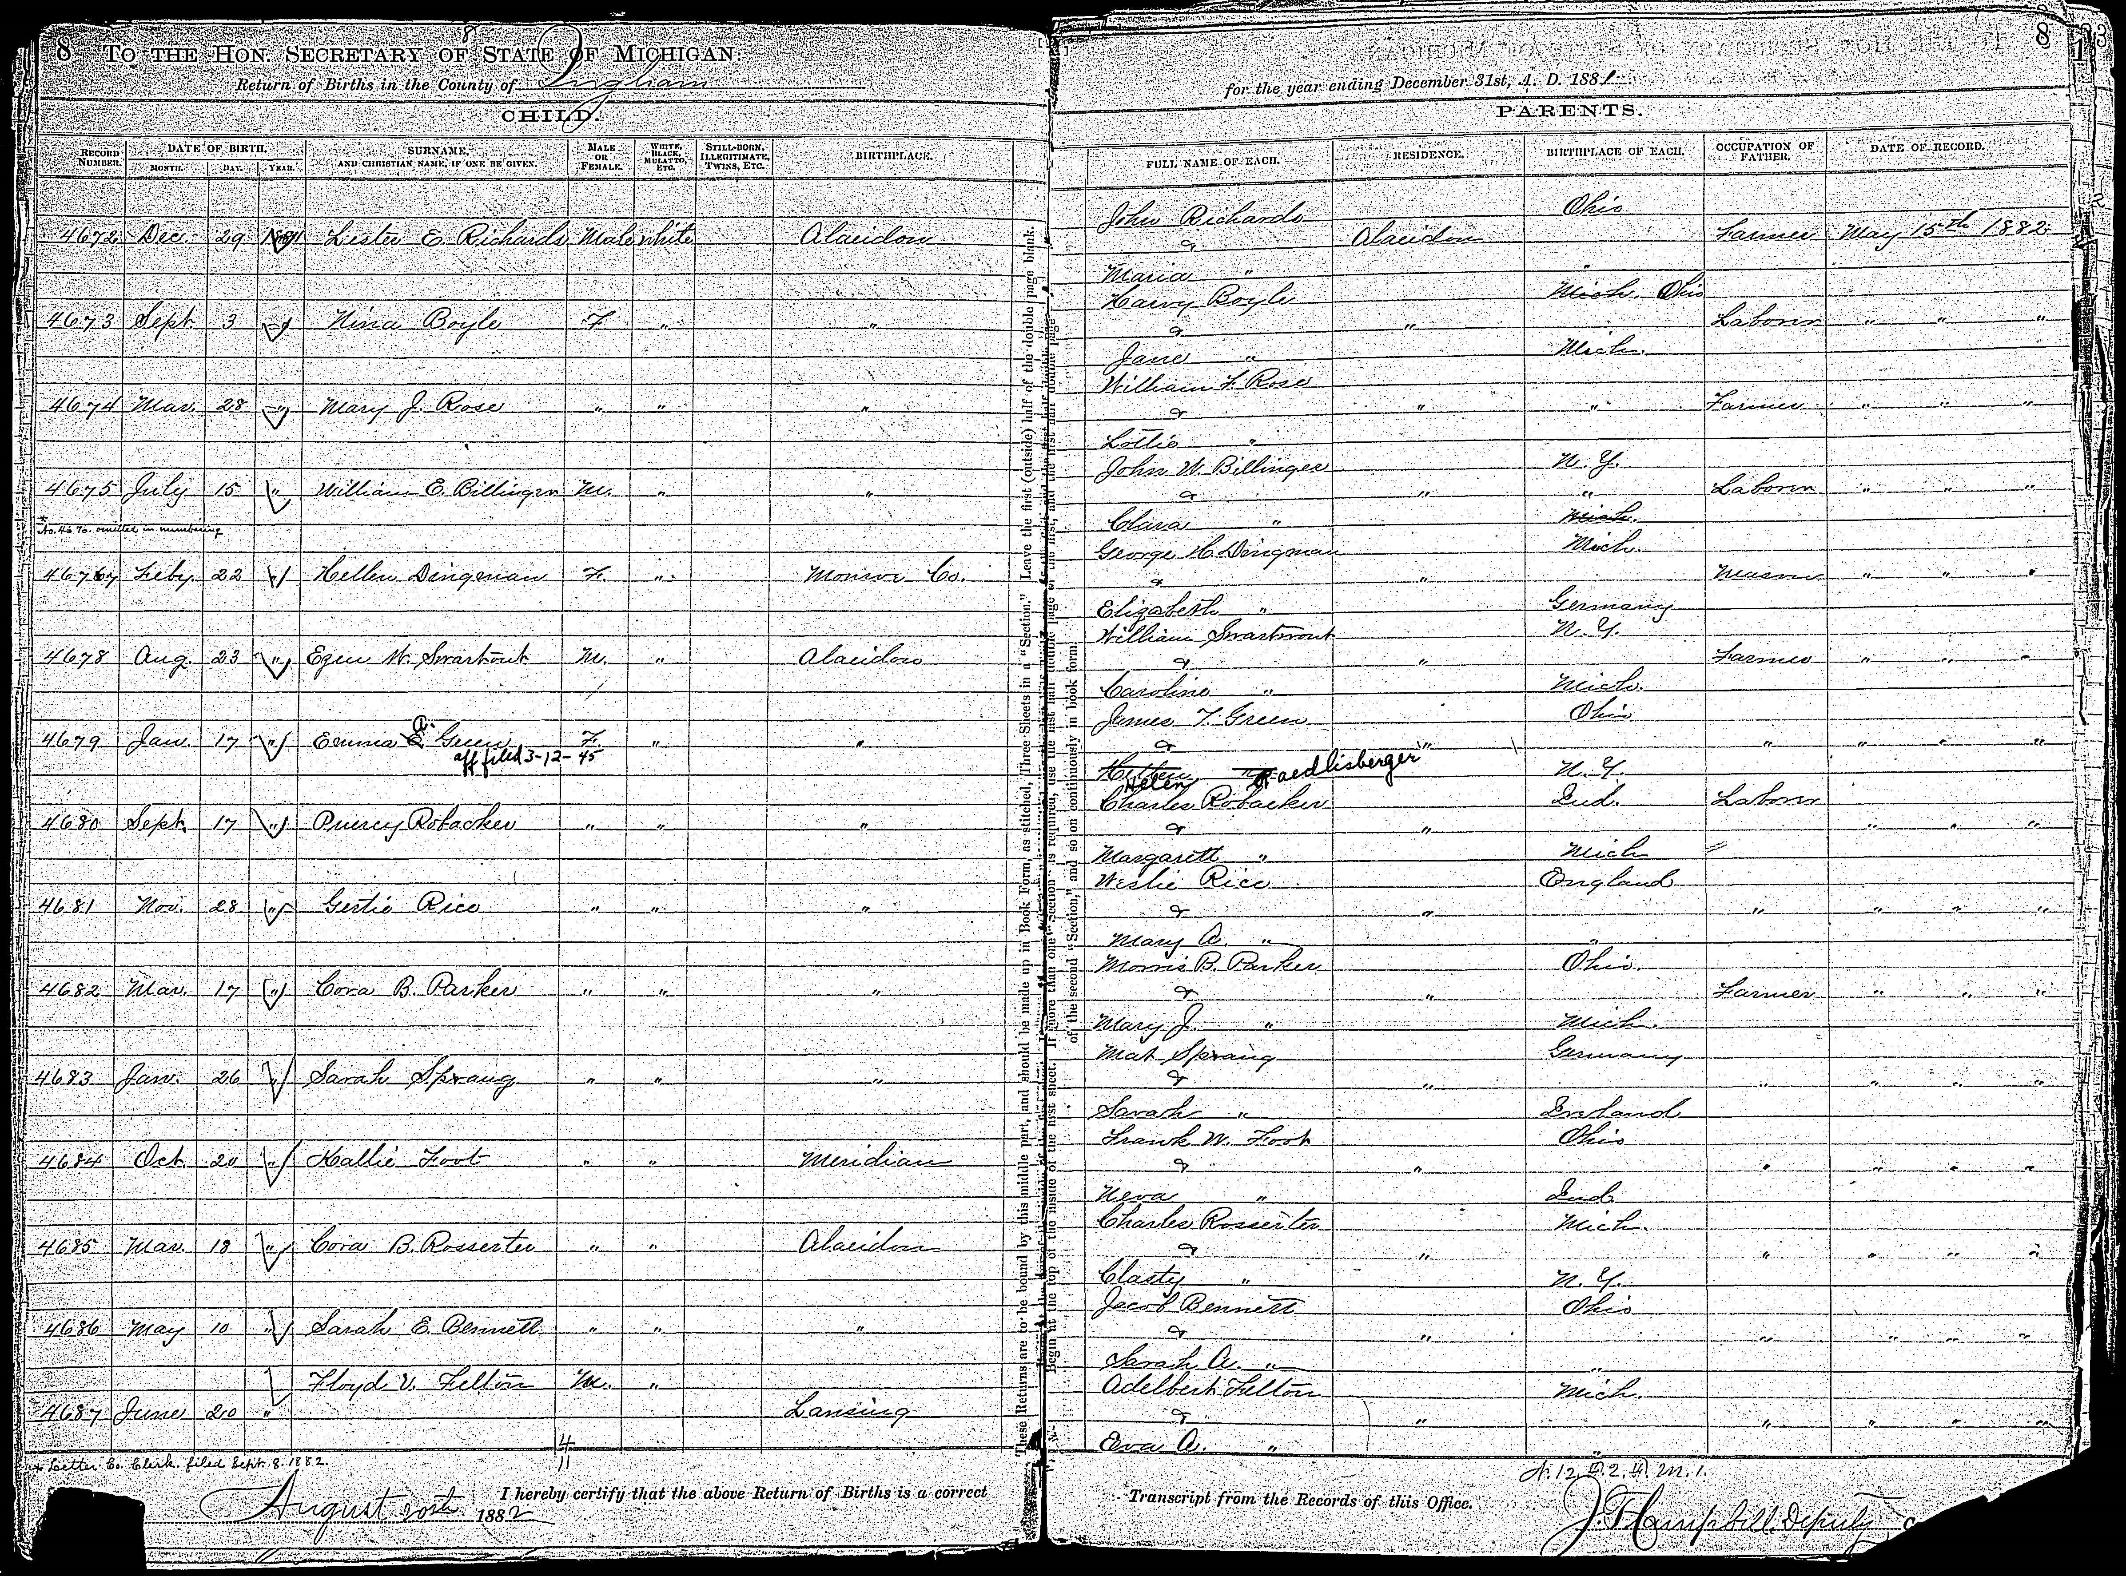 8 TO THE HON. SECRETARY OF STATE OF MICHIGAN:
8
Return of Births in the County of Ingham
CHILD.
RECORD NUMBER. DATE OF BIRTH. MONTH. DAY. YEAR. SURNAME, AND CHRISTIAN NAME, IF ONE BE GIVEN. MALE OR FEMALE. WHITE, BLACK, MULATTO, ETC. STILL-BORN, ILLEGITIMATE, TWINS, ETC. BIRTHPLACE.
4672 Dec. 29 1881 Lester E. Richards Male White Alaiedon
4673 Sept. 3 " Nina Boyle F " "
4674 Mar. 28 " Mary J. Rose " " "
4675 July 15 " William E. Billinger M. " "
* No. 4676 omitted in numbering
4677 Feby. 22 " Hellen Dingman F. " Monroe Co.
4678 Aug. 23 " Egen W. Swartout M. " Alaiedon
4679 Jan. 17 " Emma A. Green F. " "
aff filed 3-12-45
4680 Sept. 17 " Robacker " " "
4681 Nov. 28 " Gertie Rice " " "
4682 Mar. 17 " Cora B. Parker " " "
4683 Jan. 26 " Sarah Sprang " " "
4684 Oct. 20 " Hallie Foot " " Meridian
4685 Mar. 18 " Cora B. Rosserter " " Alaiedon
4686 May 10 " Sarah E. Bennett " " "
4687 June 20 " Floyd V. Felton M. " Lansing
4
11
* Letter Co. Clerk. filed Sept. 8. 1882.
August 20th 1882 I hereby certify that the above Return of Births is a correct
These Returns are to be bound by this middle part, and should be made up in Book Form, as stitched, Three Sheets in a "Section." Leave the first (outside) half of the double page blank.
Begin at the top of the inside of the first sheet. If more than one "Section" is required, use the last half double page of the first, and the first half double page
of the second "Section," and so on continuously in book form.
8
for the year ending December 31st, A. D. 1881
PARENTS.
FULL NAME OF EACH. RESIDENCE. BIRTHPLACE OF EACH. OCCUPATION OF FATHER. DATE OF RECORD.
John Richards Ohio
& Alaiedon Farmer May 15th 1882
Maria " "
Harvy Boyle Mich. Ohio
& " Laborer " " "
Jane " Mich.
William F. Rose
& " " Farmer " " "
Lottie "
John W. Billinger N.Y.
& " " Laborer " " "
Clara " Mich.
George H. Dingman Mich.
& " Mason " " "
Elizabeth " Germany
William Swartwout N.Y.
& " Farmer " " "
Caroline " Mich.
James T. Green Ohio
& " " " " "
Hellen " N.Y.
Helen Raedlisberger
Charles Robacker Ind. Laborer
& " " " "
Margarett " Mich
Weslie Rice England
& " " " " "
Mary A. " "
Morris B. Parker Ohio.
& " Farmer " " "
Mary J. " Mich.
Mat Sprang Germany
& " " " " "
Sarah " Ireland
Frank W. Foot Ohio
& " " " " "
Neva " Ind.
Charles Rosserter Mich.
& " " " " "
Clasty " N.Y.
Jacob Bennett Ohio
& " " " " "
Sarah A. " "
Adelbert Felton Mich.
& " " " " "
Eva A. " "
A. 12. F. 2. M. 1.
Transcript from the Records of this Office.
J. F. Campbell Deputy